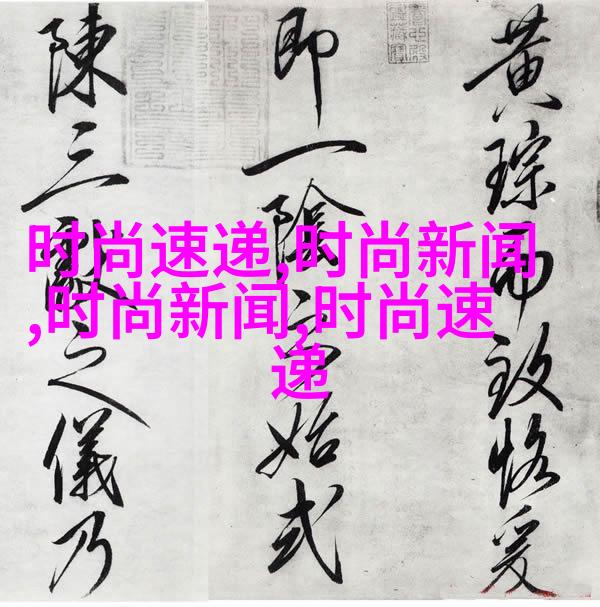 时尚速递,时尚新闻
,时尚新闻,时尚速
递
黄琮而致恪爰
即一陰之始式
陳三獻之儀乃